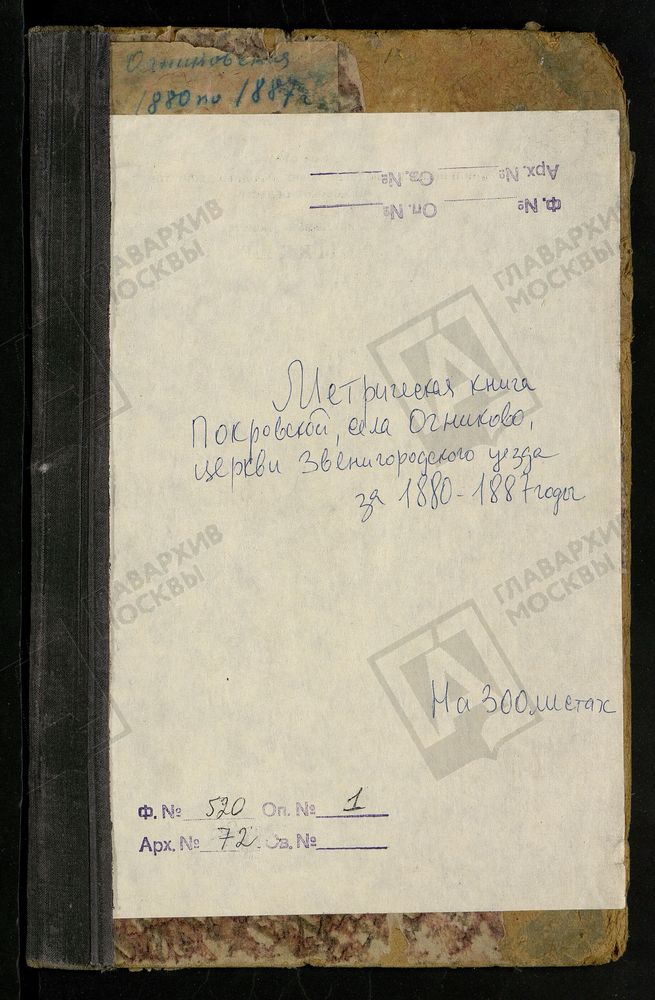 Огниковская
1880 по 1887 г
Арх. № Св. №
Ф. № Оп. №
ГЛАВАРХИВ
МОСКВЫ
ГЛАВАРХИВ
МОСКВЫ
Метрическая книга
Покровской, села Огниково,
церкви Звенигородского уезда
за 1880-1887 годы
ГЛАВАРХИВ
МОСКВЫ
ГЛАВАРХИВ
МОСКВЫ
На 300 листах
Ф. № 520 Оп. № 1
Арх. № 72 Св. №